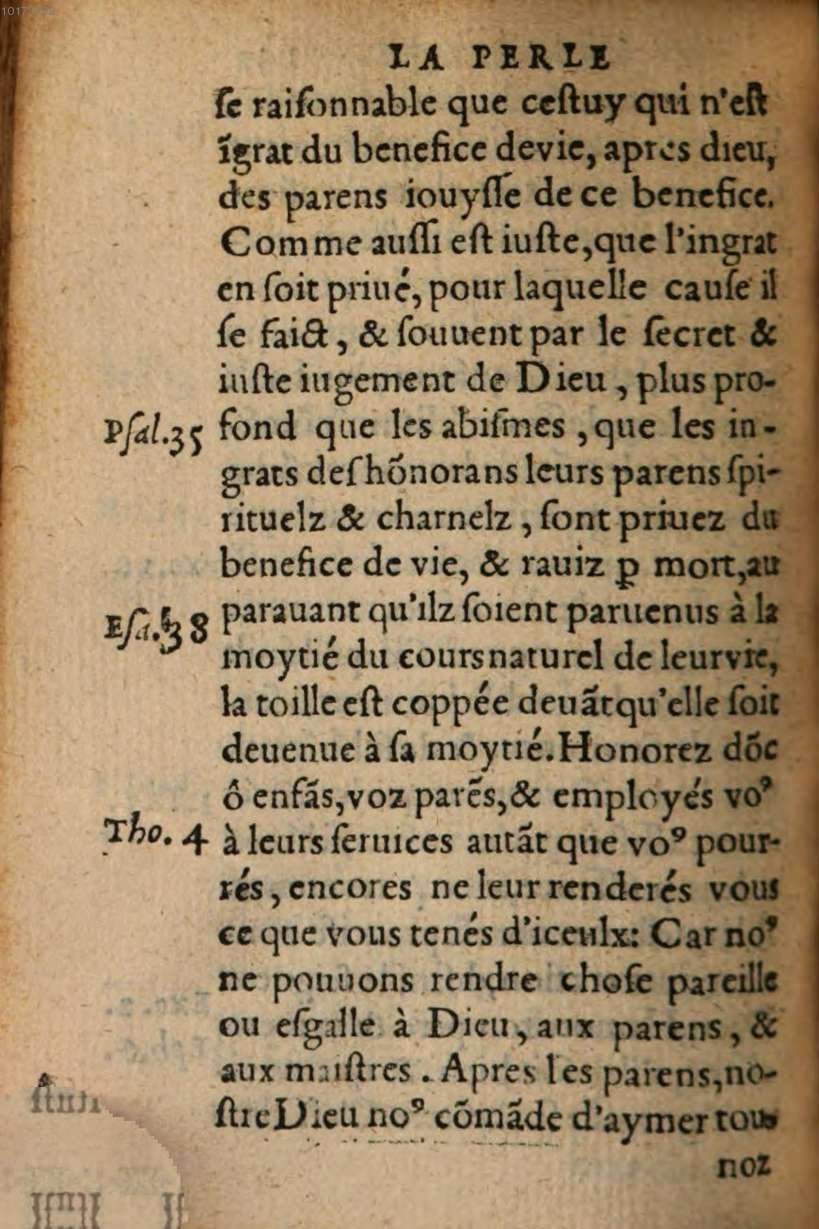 LA PERLE
ſe raiſonnable que ceſtuy qui n'eſt
ĩgrat du benefice devie, apres dieu,
des parens iouyſſe de ce benefice.
Comme auſſi eſt iuſte,que l'ingrat
en ſoit priué, pour laquelle cauſe il
ſe faict, & ſouuent par le ſecret &
iuſte iugement de Dieu, plus pro-
Pſal.35 fond que les abiſmes, que les in-
grats deſhõnorans leurs parens ſpi-
rituelz & charnelz, ſont priuez du
benefice de vie, & rauiz ꝑ mort,au
Eſa. 38 parauant qu'ilz ſoient paruenus à la
moytié du cours naturel de leurvie,
la toille eſt coppée deuãtqu'elle ſoit
deuenue à ſa moytié. Honorez dõc
ô enfãs,voz parẽs,& employés voꝰ
Tho. 4 à leurs ſeruices autãt que voꝰ pour-
rés, encores ne leur renderés vous
ce que vous tenés d'iceulx: Car noꝰ
ne pouuons rendre choſe pareille
ou eſgalle à Dieu, aux parens, &
aux maiſtres. Apres les parens,no-
ſtre Dieu noꝰ cõmãde d'aymer tous
noz